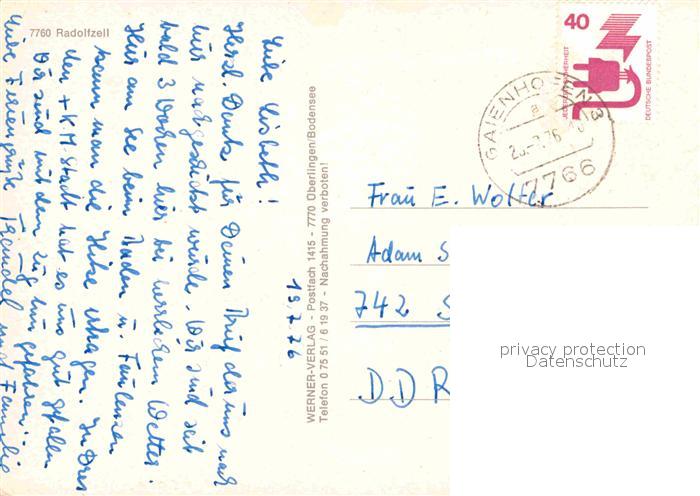 7760 Radolfzell
Liebe Lisbeth!
Herzl. Dank für Deinen Brief der uns nach
hier nachgeschickt wurde. Wir sind seit
bald 3 Wochen hier bei herrlichem Wetter.
Hier am See beim Baden u. Faulenzen
kann man die Hitze ertragen. In Dres
den + K.M.Stadt hat es uns gut gefallen
Wir sind mit dem Zug hin gefahren.
Liebe Feriengrüße und Familie
19.7.76
WERNER-VERLAG - Postfach 1415 - 7770 Überlingen/Bodensee
Telefon 0 75 51 / 6 19 37 - Nachahmung verboten!
40
JEDERZEIT SICHERHEIT
DEUTSCHE BUNDESPOST
GAIENHOFEN 3
a
7766
Frau E. Wolter
Adam S
742 S
DDR
privacy protection
Datenschutz